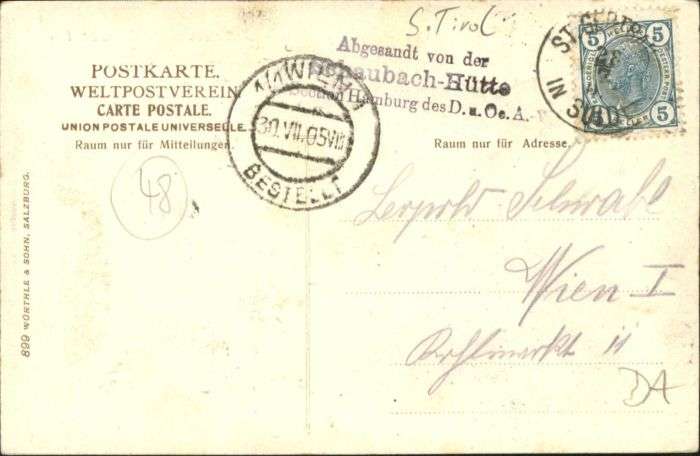 S. Tirol
POSTKARTE.
WELTPOSTVEREIN
CARTE POSTALE.
UNION POSTALE UNIVERSELLE.
Raum nur für Mitteilungen.
Abgesandt von der
Schaubach-Hütte
Section Hamburg des D. u. Oe. A.
1/1 WIEN 1
30.VII.05 VIII
BESTELLT
ST.
IN SULD
5 5
5 5
Raum nur für Adresse.
48
Leopold Schwahl
Wien I
11
DA
899 WÜRTHLE & SOHN, SALZBURG.